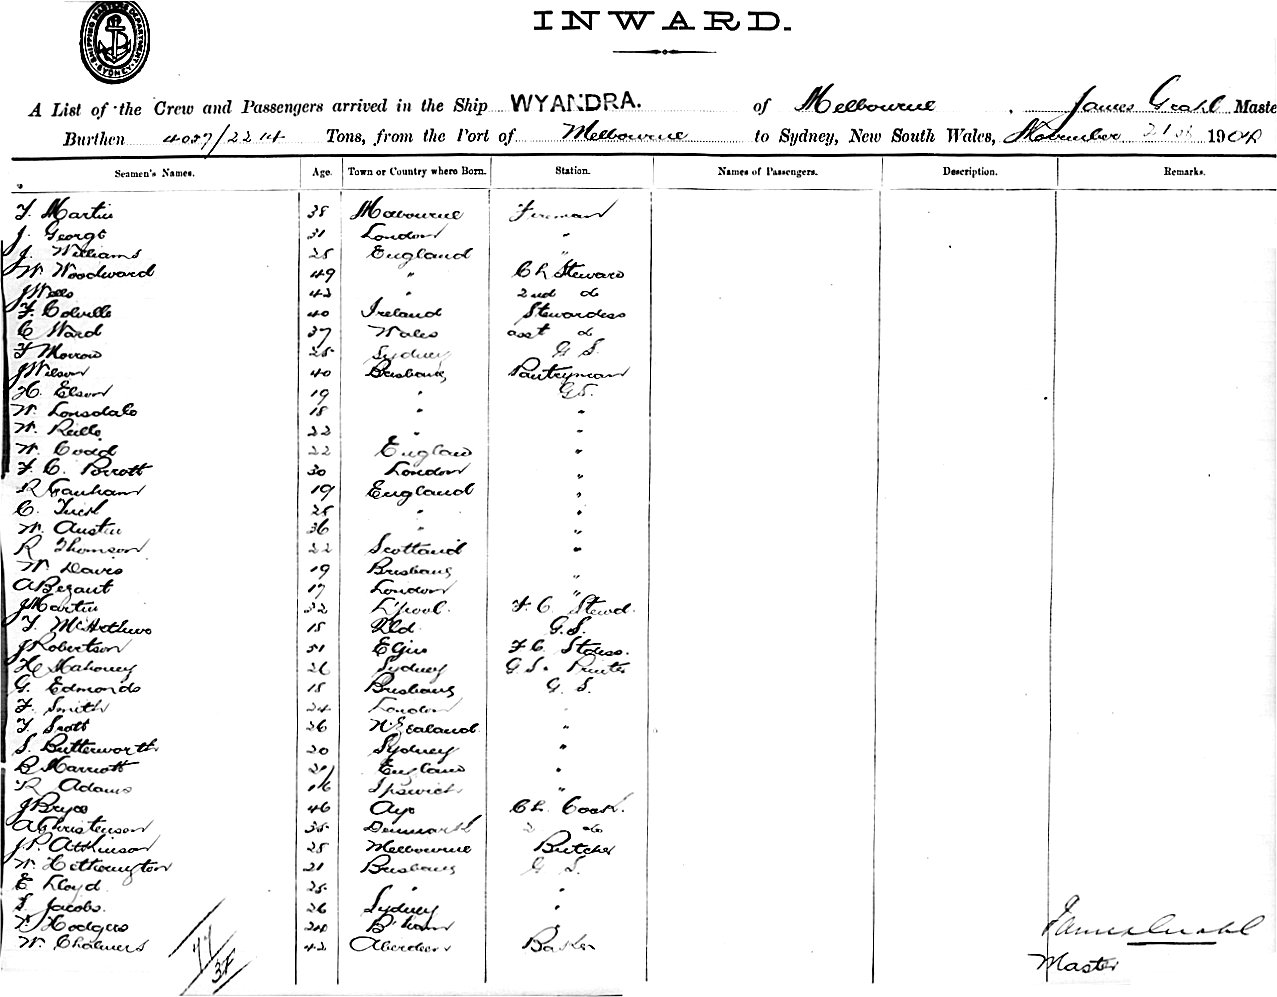 SHIPPING MASTERS DEPARTMENT. SYDNEY
INWARD.
A List of the Crew and Passengers arrived in the Ship WYANDRA. of Melbourne James Grahl Maste
Burthen 4057/2214 Tons, from the Port of Melbourne to Sydney, New South Wales, November 21st 190
Seamen's Names. Age. Town or Country where Born. Station. Names of Passengers. Description. Remarks.
T. Martin 38 Melbourne Fireman
J. George 31 London "
J. Williams 25 England "
W. Woodward 49 " Ch Steward
J Wells 43 " 2nd do
F. Colville 40 Ireland Stewardess
C Ward 37 Wales asst do
F Morrow 25 Sydney G S.
J Wilson 40 Brisbane Pantryman
H. Elson 19 " G.S.
W. Lonsdale 18 " "
W. 22 " "
W. Codd 22 England "
F. C. Perrott 30 London "
R 19 England "
C. 25 " "
W. Austin 36 " "
R Thomson 22 Scotland "
W. Davis 19 Brisbane "
A Bezant 17 London "
J Martin 32 L'pool. F. C Stewd.
T. McArthur 18 Qld. G.S.
J Robertson 51 Elgin F C Stdess.
H Mahoney 26 Sydney G S. Printer
G. Edmonds 18 Brisbane G. S.
F. Smith 24 London "
T. Scott 26 N. Zealand "
S. Butterworth 20 Sydney "
B Marriott 21 England "
R Adams 16 Ipswich "
J Bryce 46 Ayr Ch. Cook.
A Christenson 35 Denmark 2 do
J. P. Atkinson 25 Melbourne Butcher
W. Hetherington 21 Brisbane G S.
E Lloyd 25 " "
S. Jacobs. 26 Sydney "
Hodgers 20 B'ham "
W. Chalmers 42 Aberdeen Baker
77
38
James Grahl
Master